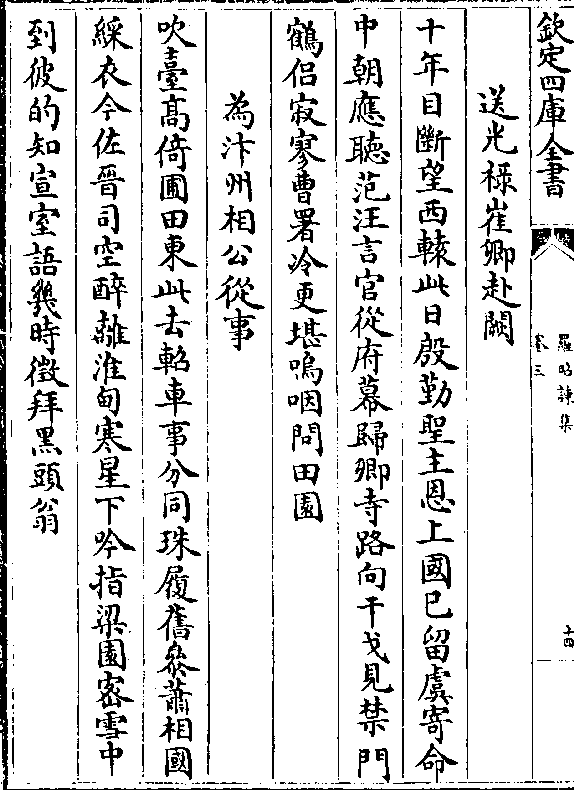 欽定四庫全書
羅昭諫集
卷三
十四
送光祿崔卿赴闕
十年目斷望西轅此日殷勤聖主恩上國已留虞寄命
中朝應聽范汪言官從府幕歸卿寺路向干戈見禁門
鶴侶寂寥曹署冷更堪嗚咽問田園
為汴州相公從事
吹臺高倚圃田東此去軺車事分同珠履舊參蕭相國
綵衣今佐晉司空醉離淮甸寒星下吟指梁園密雪中
到彼的知宣室語幾時徵拜黑頭翁